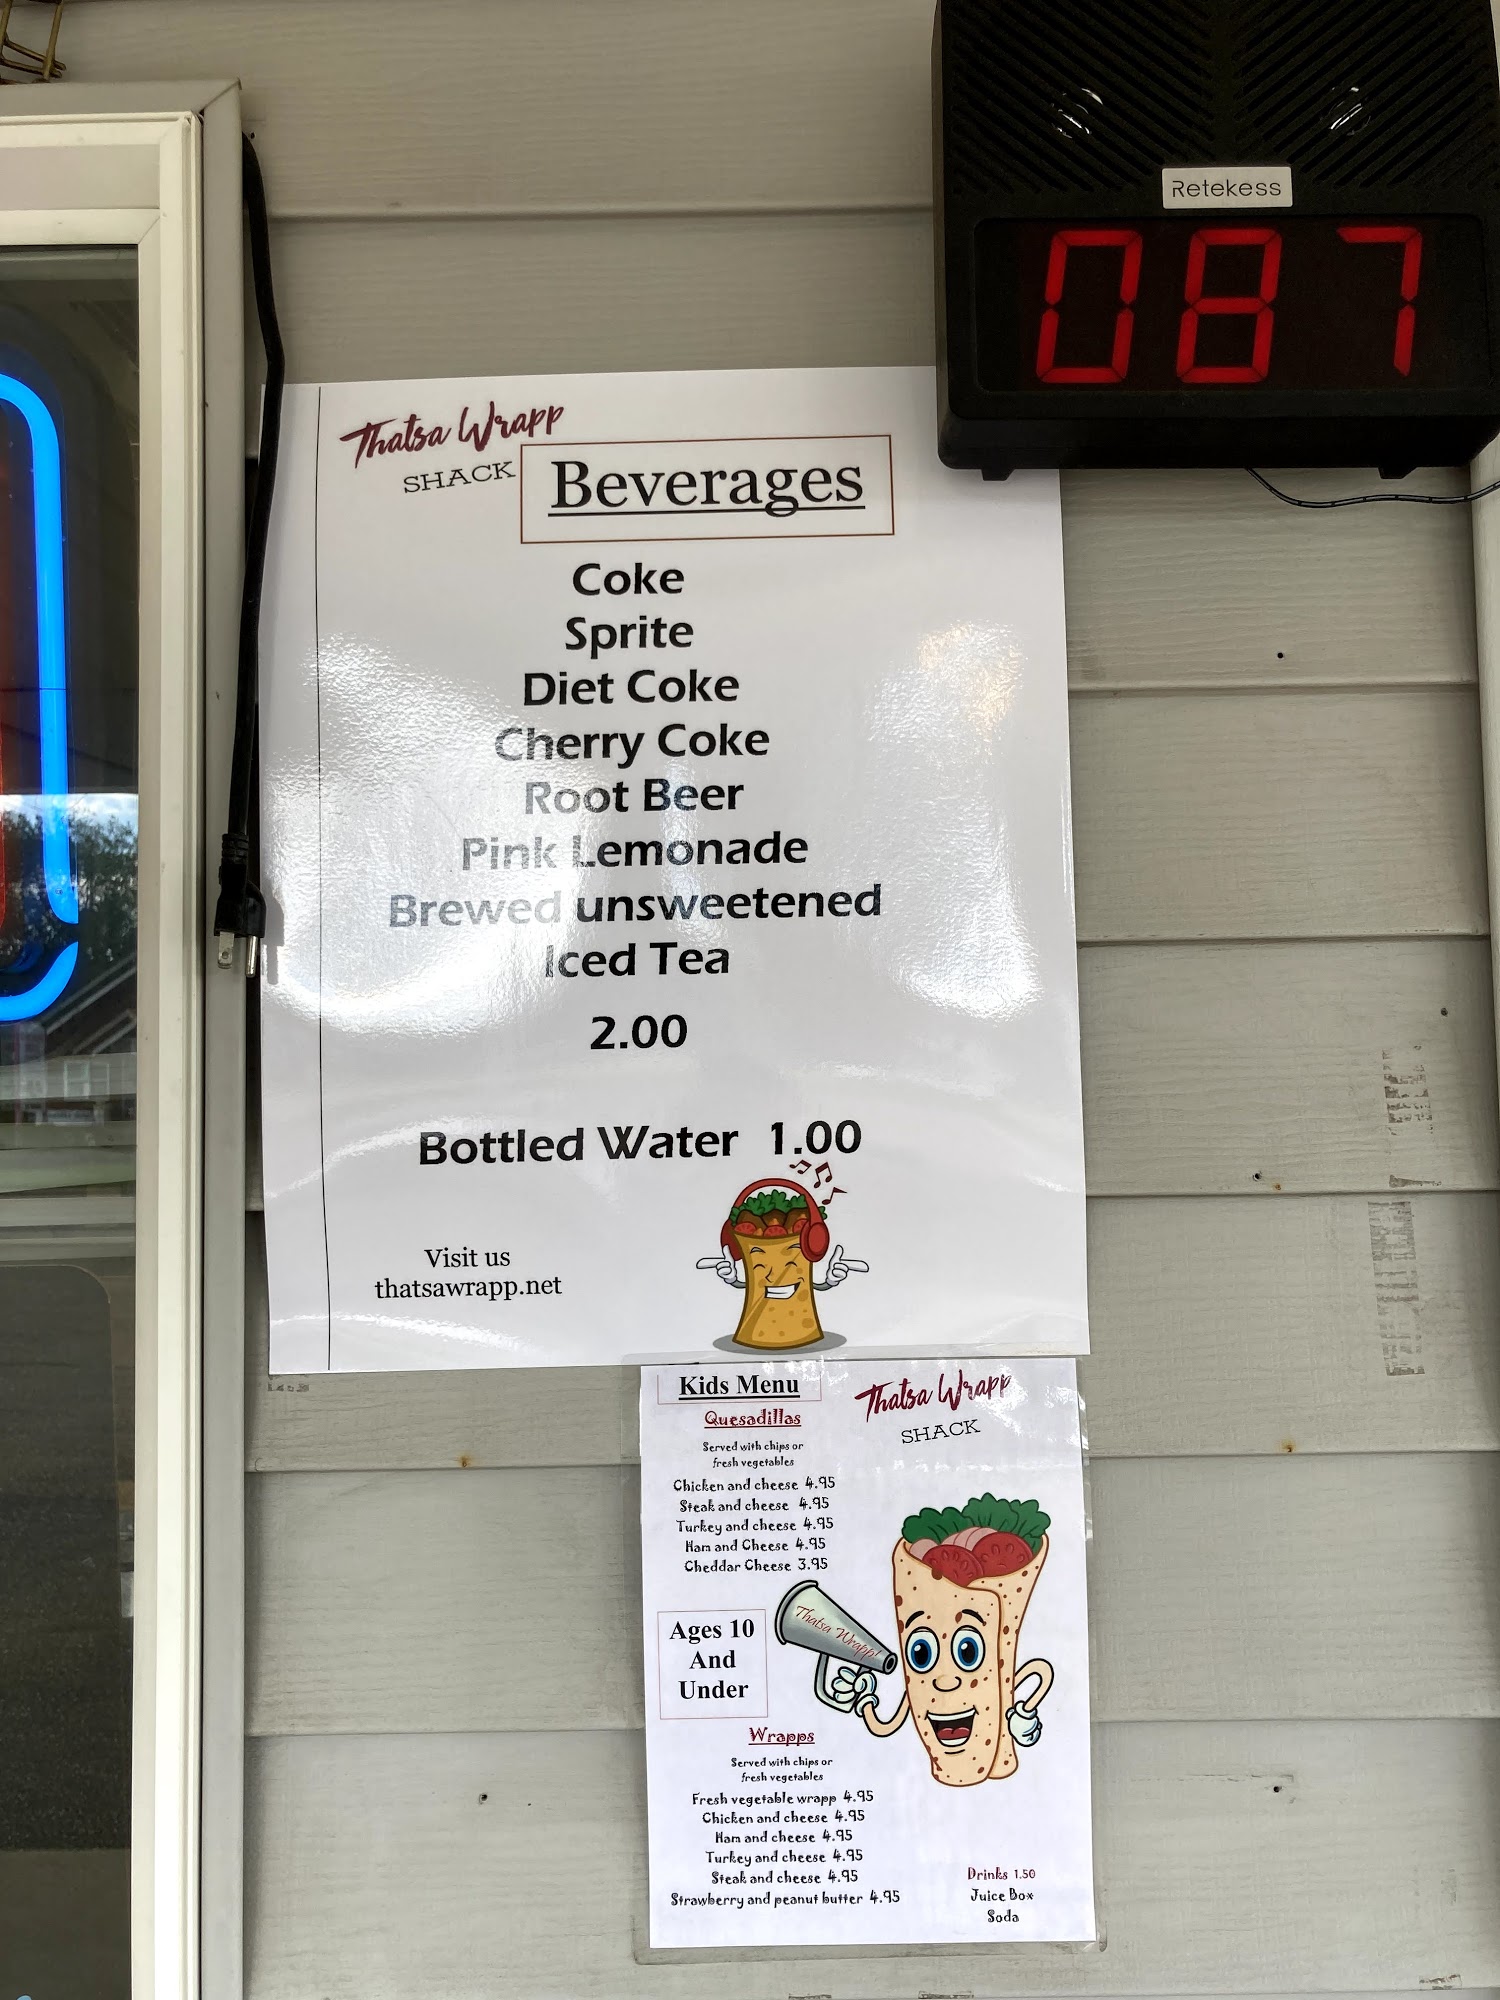 Retekess
087
Thatsa Wrapp
SHACK
Beverages
Coke
Sprite
Diet Coke
Cherry Coke
Root Beer
Pink Lemonade
Brewed unsweetened
Iced Tea
2.00
Bottled Water 1.00
Visit us
thatsawrapp.net
Kids Menu
Quesadillas
Served with chips or
fresh vegetables
Chicken and cheese 4.95
Steak and cheese 4.95
Turkey and cheese 4.95
Ham and Cheese 4.95
Cheddar Cheese 3.95
Thatsa Wrapp
SHACK
Thatsa Wrapp!
Ages 10
And
Under
Wrapps
Served with chips or
fresh vegetables
Fresh vegetable wrapp 4.95
Chicken and cheese 4.95
Ham and cheese 4.95
Turkey and cheese 4.95
Steak and cheese 4.95
Strawberry and peanut butter 4.95
Drinks 1.50
Juice Box
Soda